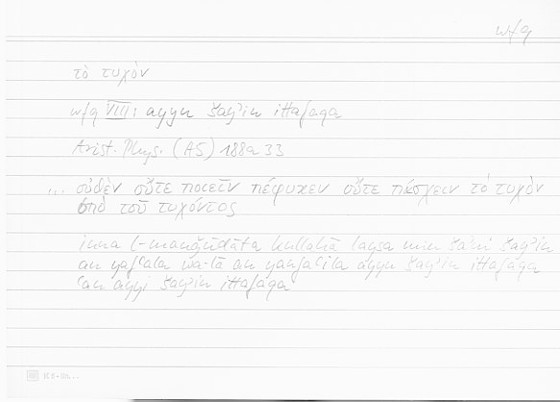 wfq
τὸ τυχόν
wfq VIII: ayyu šayʾin ittafaqa
Arist. Phys. (A5) 188a 33
... οὐθὲν οὔτε ποιεῖν πέφυκεν οὔτε πάσχειν τὸ τυχὸν
ὑπὸ τοῦ τυχόντος
inna l-mauǧūdāta kullahā laysa min šaʾni šayʾin
an yafʿala wa-lā an yanfaʿila ayyu šayʾin ittafaqa
ʿan ayyi šayʾin ittafaqa